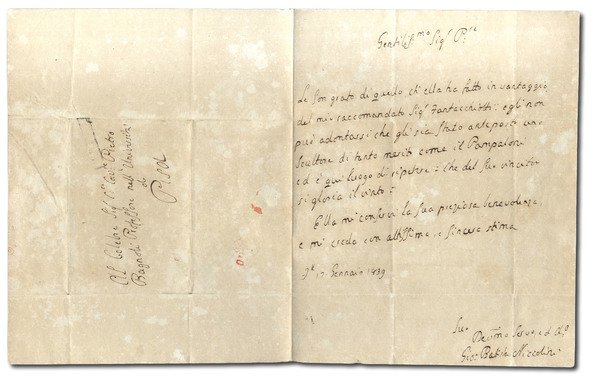 Al Celebre Sig.re Cav.re Pietro
Bagnoli Professore nell'Università
di
PISA
Gentiliss.mo Sig.r P.re
Le son grato di quello ch'ella ha fatto in vantaggio
del mio raccomandato Sig.r Fantacchiotti: egli non
può adontarsi che gli sia stato anteposto uno
Scultore di tanto merito come il Pampaloni
ed è qui luogo di ripetere: che del suo vincitor
si gloria il vinto:
Ella mi conservi la sua preziosa benevolenza,
e mi creda con altissima, e sincera stima
17 Gennaio 1839
Suo
Dev.mo Serv.e ed A.o
Gio. Batista Niccolini